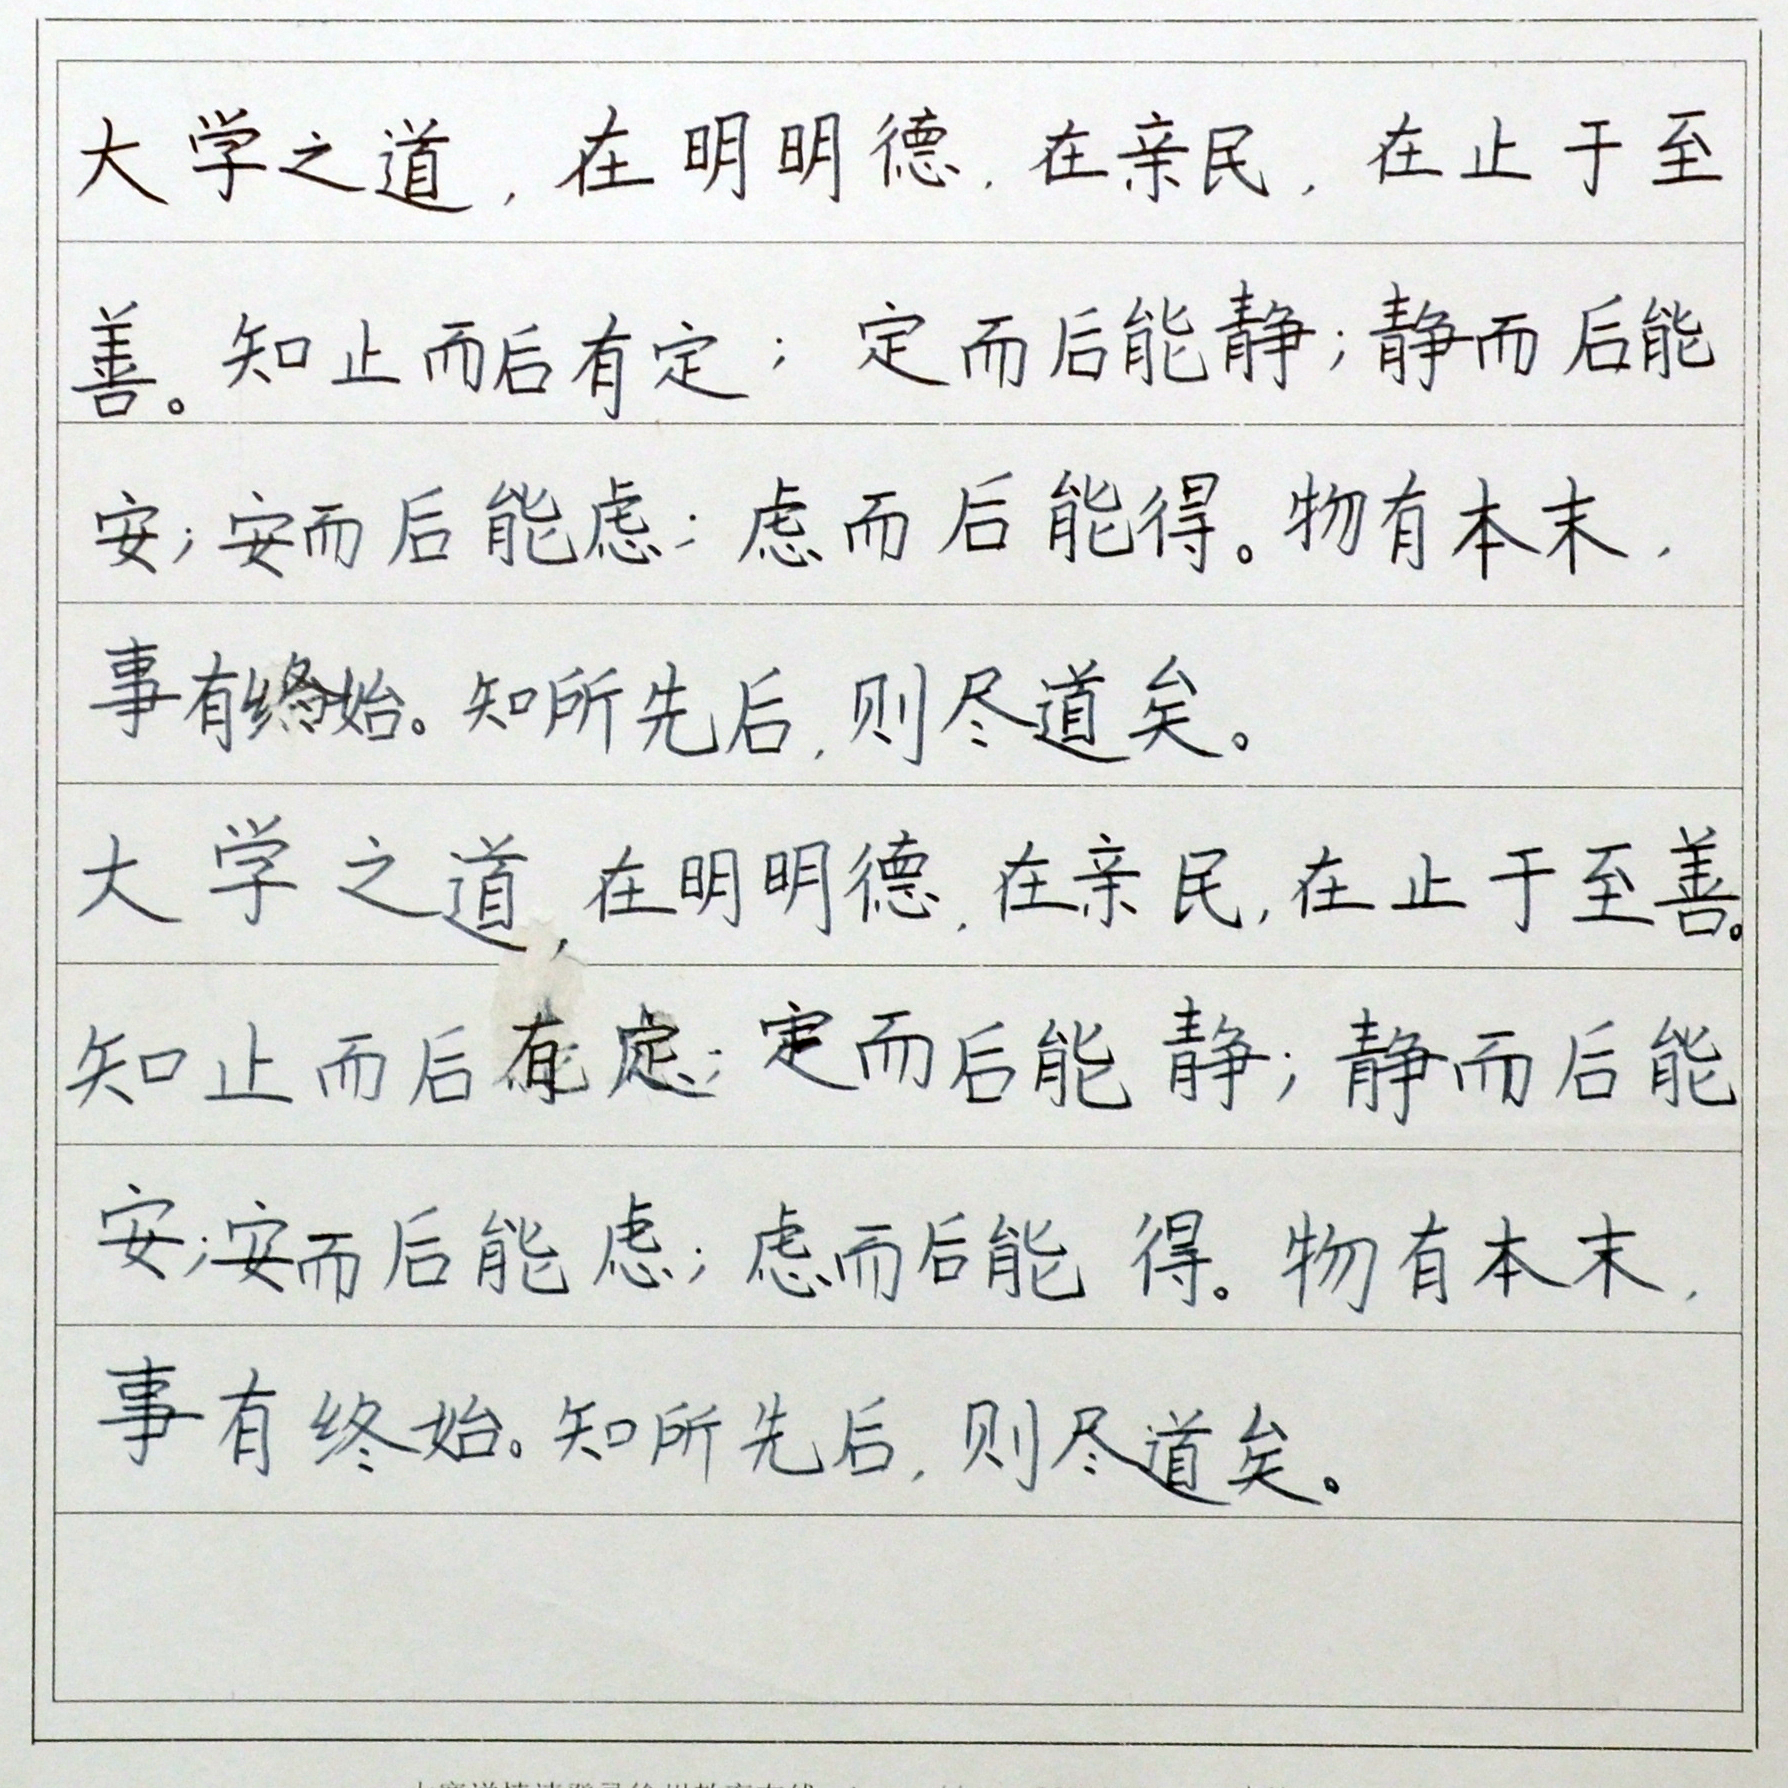 大学之道，在明明德，在亲民，在止于至
善。知止而后有定；定而后能静；静而后能
安；安而后能虑；虑而后能得。物有本末，
事有终始。知所先后，则尽道矣。
大学之道，在明明德，在亲民，在止于至善。
知止而后有定；定而后能静；静而后能
安；安而后能虑；虑而后能得。物有本末，
事有终始。知所先后，则尽道矣。